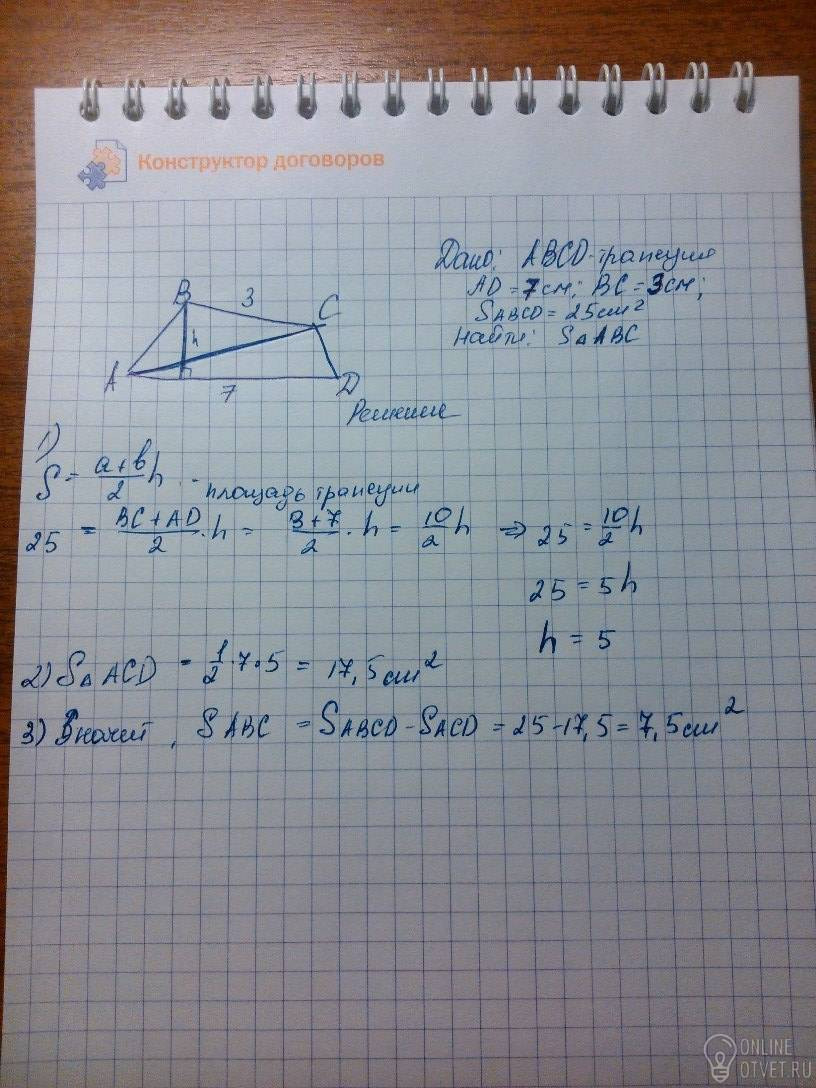 Конструктор договоров
Дано: ABCD-трапеция
AD = 7см; BC = 3см;
SABCD = 25см²
Найти: S△ABC
B 3 C
h
A 7 D
Решение
1)
S = a+b/2 h - площадь трапеции
25 = BC+AD/2 · h = 3+7/2 · h = 10/2 h ⇒ 25 = 10/2 h
25 = 5h
h = 5
2) S△ACD = 1/2 · 7 · 5 = 17,5см²
3) Значит, SABC = SABCD - SACD = 25-17,5 = 7,5см²
ONLINE
OTVET.RU